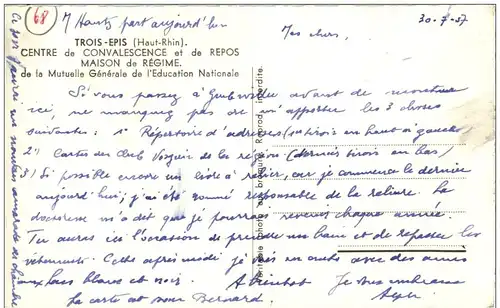 68
M Hantz part aujourd'hui
30-7-57
TROIS-EPIS (Haut-Rhin).
CENTRE de CONVALESCENCE et de REPOS
MAISON de RÉGIME.
de la Mutuelle Générale de l'Education Nationale
Mes chers,
Si vous passez à avant de monter
ici, ne manquez pas de m'apporter les 3 choses
suivantes : 1° Répertoire d'adresses ( tiroir en haut à gauche)
2°) Cartes du Club Vosgien de la région (dernier tiroir en bas)
3) Si possible encore un livre à relier, car je commence le dernier
aujourd'hui; j'ai été nommé responsable de la reliure. La
doctoresse m'a dit que je pourrais revenir chaque année.
Tu auras ici l'occasion de prendre un bain et de repasser les
vêtements. Cette après midi je vais en auto avec des amis
aux lacs blanc et noir. A bientôt Je vous embrasse
La carte est pour Bernard.